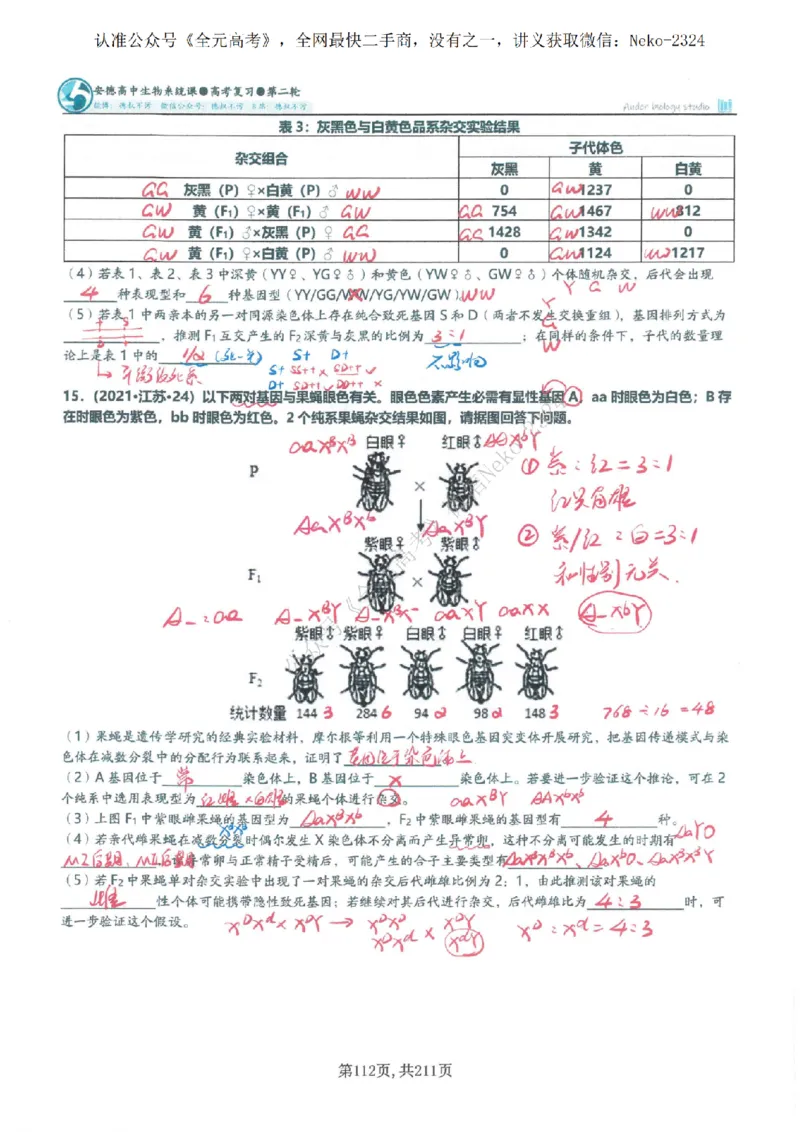 认准公众号《全元高考》，全网最快二手商，没有之一，讲义获取微信：Neko-2324
安德高中生物系统课●高考复习●第二轮
Ander biology studio
表3：灰黑色与白黄色品系杂交实验结果
杂交组合 子代体色
灰黑 黄 白黄
GG 灰黑（P）♀×白黄（P）♂ WW 0 GW 1237 0
GW 黄（F₁）♀×黄（F₁）♂ GW GG 754 GW 1467 WW 812
GW 黄（F₁）♂×灰黑（P）♀ GG GG 1428 GW 1342 0
GW 黄（F₁）♀×白黄（P）♂ WW 0 GW 1124 WW 1217
（4）若表1、表2、表3中深黄（YY♀、YG♀♂）和黄色（YW♀♂、GW♀♂）个体随机杂交，后代会出现
4 种表现型和 6 种基因型（YY/GG/WW/YG/YW/GW）。WW Y G W
（5）若表1中两亲本的另一对同源染色体上存在纯合致死基因S和D（两者不发生交换重组），基因排列方式为
，推测F₁互交产生的F₂深黄与灰黑的比例为 3:1 ；在同样的条件下，子代的数量理
论上是表1中的 1/2（死一半） 不影响
平衡致死系
15.（2021•江苏•24）以下两对基因与果蝇眼色有关。眼色色素产生必需有显性基因A，aa时眼色为白色；B存
在时眼色为紫色，bb时眼色为红色。2个纯系果蝇杂交结果如图，请据图回答下问题。
aaXᴮXᴮ 白眼♀ 红眼♂ AAXᵇY
P ×
① 紫：红=3:1
AaXᴮXᵇ AaXᴮY
② 紫/红：白=3:1
紫眼♀ 紫眼♂
和性别无关.
F₁ ×
A_：aa A_XᴮY A_XᴮX⁻ aaXY aaXX A_XᵇY
紫眼♂ 紫眼♀ 白眼♂ 白眼♀ 红眼♂
F₂
统计数量 144 3 284 6 94 2 98 2 148 3 768÷16=48
（1）果蝇是遗传学研究的经典实验材料，摩尔根等利用一个特殊眼色基因突变体开展研究，把基因传递模式与染
色体在减数分裂中的分配行为联系起来，证明了 基因位于染色体上
（2）A基因位于 常 染色体上，B基因位于 X 染色体上。若要进一步验证这个推论，可在2
个纯系中选用表现型为 红雌×白雄 的果蝇个体进行杂交。 aaXᴮY AAXᵇXᵇ
（3）上图F₁中紫眼雌果蝇的基因型为 AaXᴮXᵇ ，F₂中紫眼雌果蝇的基因型有 4 种。
（4）若亲代雌果蝇在减数分裂时偶尔发生X染色体不分离而产生异常卵，这种不分离可能发生的时期有
，该异常卵与正常精子受精后，可能产生的合子主要类型有 AaXᴮXᴮXᵇ、AaXᵇO、AaXᴮXᴮY AaYO
（5）若F₂中果蝇单对杂交实验中出现了一对果蝇的杂交后代雌雄比例为2：1，由此推测该对果蝇的
雌 性个体可能携带隐性致死基因；若继续对其后代进行杂交，后代雌雄比为 4:3 时，可
进一步验证这个假设。 XᴰXᵈ×XᴰY → XᴰXᴰ XᴰY
XᴰXᵈ × XᵈY Xᴰ：Xᵈ=4:3
第112页,共211页